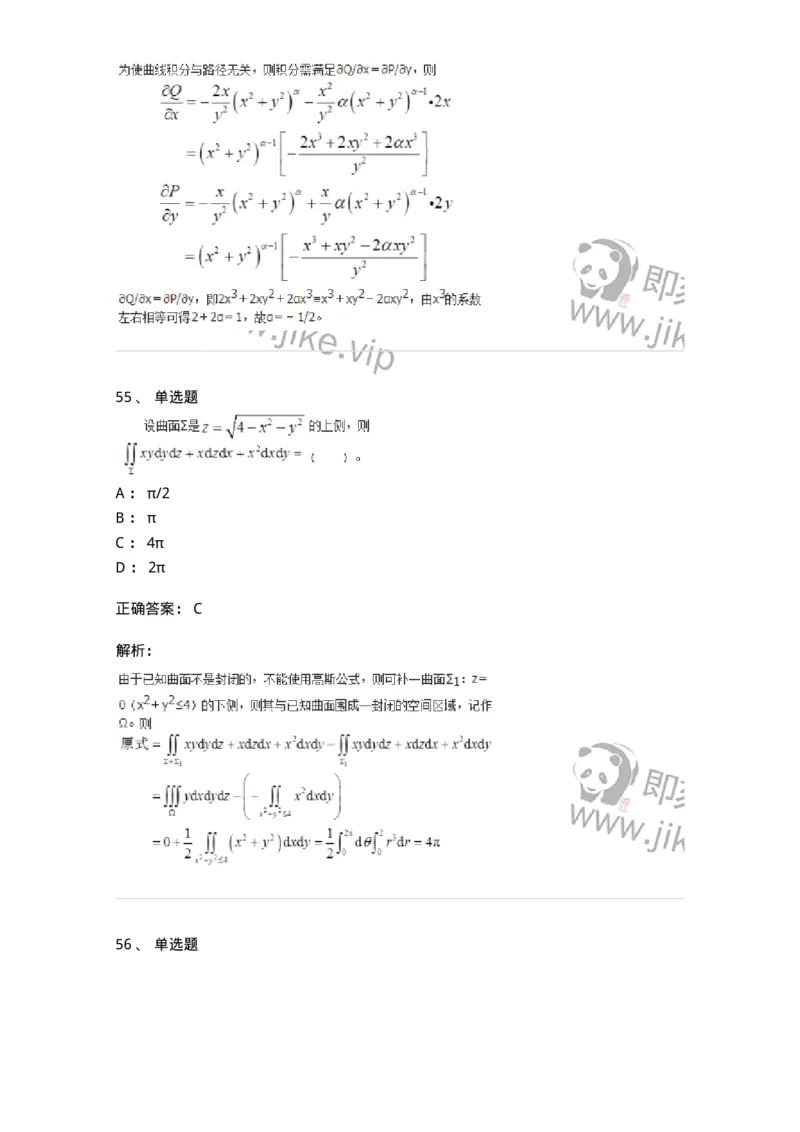 为使曲线积分与路径无关，则积分需满足∂Q/∂x＝∂P/∂y，则
∂Q/∂x = −(2x/y²)(x²+y²)^α − (x²/y²)α(x²+y²)^(α−1)•2x
=(x²+y²)^(α−1)[−(2x³+2xy²+2αx³)/y²]
∂P/∂y = −(x/y²)(x²+y²)^α + (x/y)α(x²+y²)^(α−1)•2y
=(x²+y²)^(α−1)[−(x³+xy²−2αxy²)/y²]
∂Q/∂x＝∂P/∂y，即2x³＋2xy²＋2αx³≡x³＋xy²－2αxy²，由x³的系数
左右相等可得2＋2α＝1，故α＝－1/2。
即
www.jike
w.jike.vip
55 、 单选题
设曲面Σ是z=√(4−x²−y²)的上侧，则
∬_Σ xydydz+xdzdx+x²dxdy=（ ）。
A： π/2
B： π
C： 4π
D： 2π
正确答案： C
解析：
由于已知曲面不是封闭的，不能使用高斯公式，则可补一曲面Σ₁：z＝
0（x²＋y²≤4）的下侧，则其与已知曲面围成一封闭的空间区域，记作
Ω。则
原式=∬_(Σ+Σ₁) xydydz+xdzdx+x²dxdy−∬_(Σ₁) xydydz+xdzdx+x²dxdy
=∭_Ω ydxdydz−(−∬_(x²+y²≤4) x²dxdy)
=0+(1/2)∬_(x²+y²≤4)(x²+y²)dxdy=(1/2)∫_0^(2π)dθ∫_0^2 r³dr=4π
即
www.jike
56 、 单选题